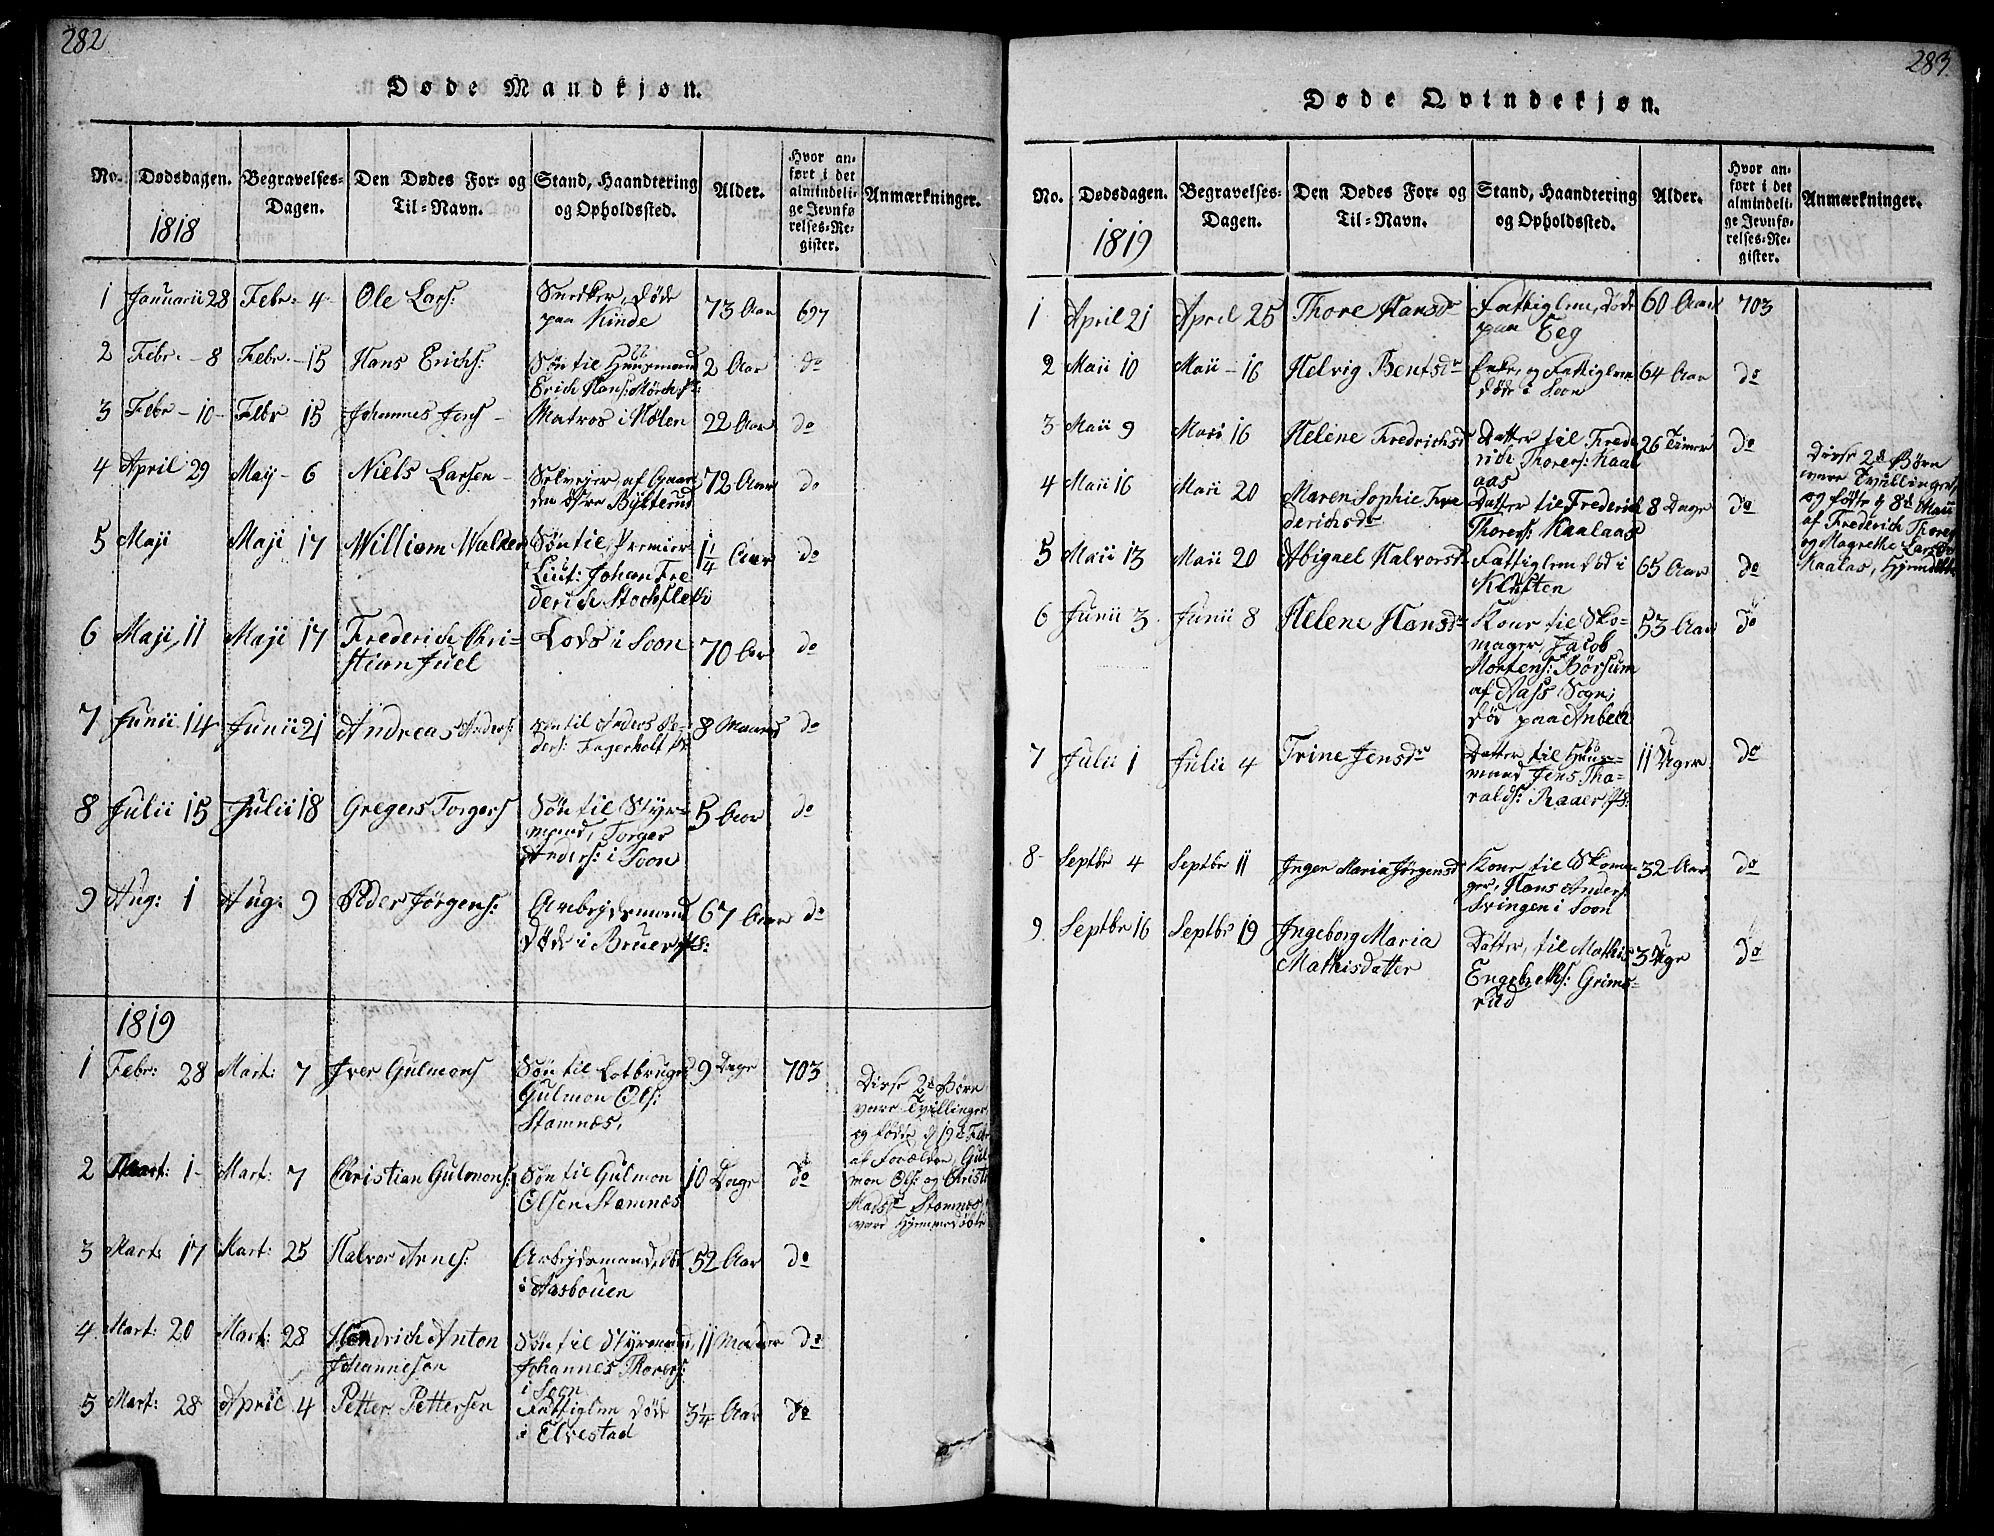 282
Døde Mandkjøn.
No. Dødsdagen. Begravelses-Dagen. Den Dødes For- og Til-Navn. Stand, Haandtering og Opholdssted. Alder. Hvor anført i det almindelige Jevnførelses-Register. Anmærkninger.
1818
1 Januarii 28 Febr: 4 Ole Lars: Snedker, døde 73 Aar 697
paa Kinde
2 Febr. 8 Febr. 15 Hans Erichs: Søn til Huusmand 2 Aar do
Erich Hans:
3 Febr 10 Febr 15 Johannes Jens Matros i Hølen 22 Aar do
4 April 29 Maij 6 Niels Larsen Selvejer af Gaar 72 Aar do
den
5 Maji Maji 17 William Walker Søn til, Premier 1 1/4 Aar do
Lieut: Johan Fre
derich Stochfleth
6 Maji 11 Maji 17 Frederich Chri- Lods i Soon 70 Aar do
stian Juel
7 Junii 14 Junii 21 Andreas Anders: Søn til Anders Pe- 8 Maaned do
ders: Fagerholt
8 Julii 15 Julii 18 Gregers Torgers Søn til Styr- 5 Aar do
mand, Torger
Anders: i Soon
9 Aug: 1 Aug: 9 Peder Jørgens: Arbejdsmand 67 Aar do
Døde i Bruer
1819
1 Febr: 28 Mart: 7 Iver Gulmons Søn til 9 Dage 703
Gulmon Ols:
Stamnæs,
Disse 2de Børn
vare Tvillinger
og fødte d 19de Febr
af Forældre, Gul
mon Ols: og Christi
Madsdr Stamnæs
vare Hjemmedøbte
2 Mart: 1 Mart: 7 Christian Gulmons: Søn til Gulmon 10 Dage do
Olsen Stamnæs
3 Mart: 17 Mart: 25 Halvor Arnes: Arbejdsmand, 52 Aar do
i Aasbouen
4 Mart: 20 Mart: 28 Hendrich Anton Søn til Styrmand 11 do
Johannesen Johannes Thorers:
i Soon
5 Mart: 28 April 4 Petter Pettersen Fattiglem døde 3 1/4 Aar do
i Elvestad
283
Døde Qvindekjøn.
No. Dødsdagen. Begravelses-Dagen. Den Dødes For- og Til-Navn. Stand, Haandtering og Opholdssted. Alder. Hvor anført i det almindelige Jevnførelses-Register. Anmærkninger.
1819
1 April 21 April 25 Thore Hansdr Fattiglem, døde 60 Aar 703
paa Eeg
2 Maii 10 Maii 16 Helvig Bentsdr Enke, og Fattiglem 64 Aar do
døde i Soon
3 Maii 9 Maii 16 Helene Fredrichsdr Datter til Frede 26 Timer do
rich Thorers: Kaal
aas
4 Maii 16 Maii 20 Maren Sophie Fre Datter til Frederich 8 Dage do
derichsdr Thorers: Kaalaas
Disse 2de Børn
vare Tvillinger
og fødte d 8de Maii
af Frederich Thorers
og Magrethe Larsdr
Kaalas,
5 Maii 13 Maii 20 Abigael Halvorsdr Fattiglem død i 65 Aar do
6 Junii 3 Junii 8 Helene Hansdr Kone til Sko- 53 Aar do
mager, Jacob
Mortens: Børsum
af Aass Sogn,
død paa Anbech
7 Julii 1 Julii 4 Trine Jensdr Datter til Huus- 11 Uger do
mand Jens Tha-
ralds: Raaer
8 Septbr 4 Septbr 11 Inger Maria Jørgensdr Kone til Skoma- 32 Aar do
ger, Hans Anders
Svingen i Soon
9 Septbr 16 Septbr 19 Ingeborg Maria Datter, til Mathis 3 Uge do
Mathisdatter Engebreths: Grims-
rud